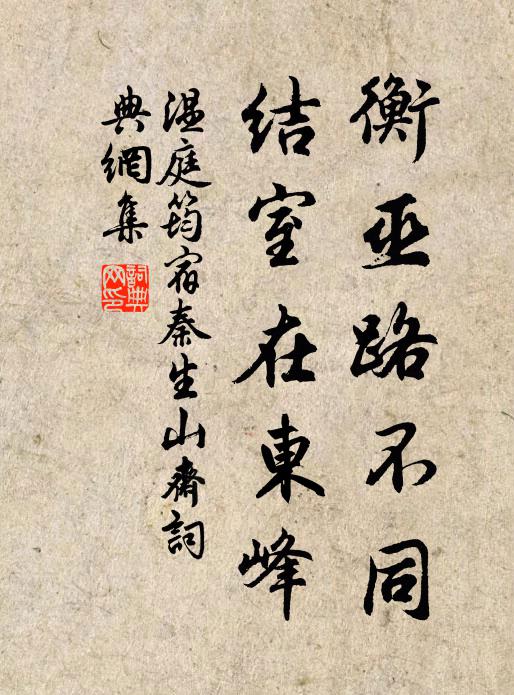 衡巫路不同
結室在東峰
温庭筠宿秦生山齋詞
典網集
詞典網印